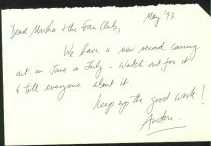 May '93
Dear Martha & the Fan Club,
We have a new record coming
out in June or July - Watch out for it
& tell everyone about it
Keep up the good work!